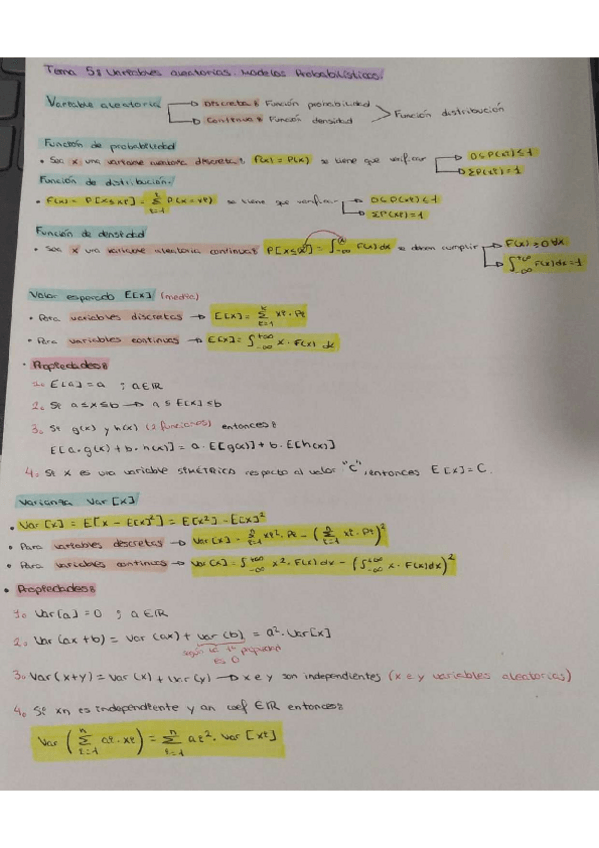 Tema 5: Variables aleatorias. Modelos Probabilísticos.
Variable aleatoria → Discreta: Función probabilidad
→ Continua: Función densidad > Función distribución
Función de probabilidad
• Sea x una variable aleatoria discreta: f(x) = P(x) se tiene que verificar → 0 ≤ P(xi) ≤ 1
→ ΣP(xi) = 1
Función de distribución.
• F(x) = P[x ≤ xi] = Σ i=1 P(x = xi) se tiene que verificar → 0 ≤ P(xi) ≤ 1
→ ΣP(xi) = 1
Función de densidad
• Sea x una variable aleatoria continua: P[x ≤ a] = ∫_{-∞}^{a} f(x) dx se deben cumplir → f(x) ≥ 0 ∀x
→ ∫_{-∞}^{+∞} f(x) dx = 1
Valor esperado E[x] (media)
• Para variables discretas → E[x] = Σ i=1 xi · Pi
• Para variables continuas → E[x] = ∫_{-∞}^{+∞} x · f(x) dx
• Propiedades:
1. E[a] = a ; a ∈ ℝ
2. Si a ≤ x ≤ b → a ≤ E[x] ≤ b
3. Si g(x) y h(x) (2 funciones) entonces:
E[a · g(x) + b · h(x)] = a · E[g(x)] + b · E[h(x)]
4. Si x es una variable SIMÉTRICA respecto al valor "C", entonces E[x] = C.
Varianza Var[x]
• Var[x] = E[x - E[x]²] = E[x²] - E[x]²
• Para variables discretas → Var[x] = Σ i=1 xi² · Pi - (Σ i=1 xi · Pi)²
• Para variables continuas → Var[x] = ∫_{-∞}^{+∞} x² · f(x) dx - (∫_{-∞}^{+∞} x · f(x) dx)²
• Propiedades:
1. Var[a] = 0 ; a ∈ ℝ
2. Var(ax + b) = Var(ax) + Var(b) = a² · Var[x]
según la 1ª propiedad
es 0
3. Var(x+y) = Var(x) + Var(y) → x e y son independientes (x e y variables aleatorias)
4. Si xn es independiente y an coef ∈ ℝ entonces:
Var (Σ_{i=1}^{n} ai · xi) = Σ_{i=1}^{n} ai² · Var[xi]